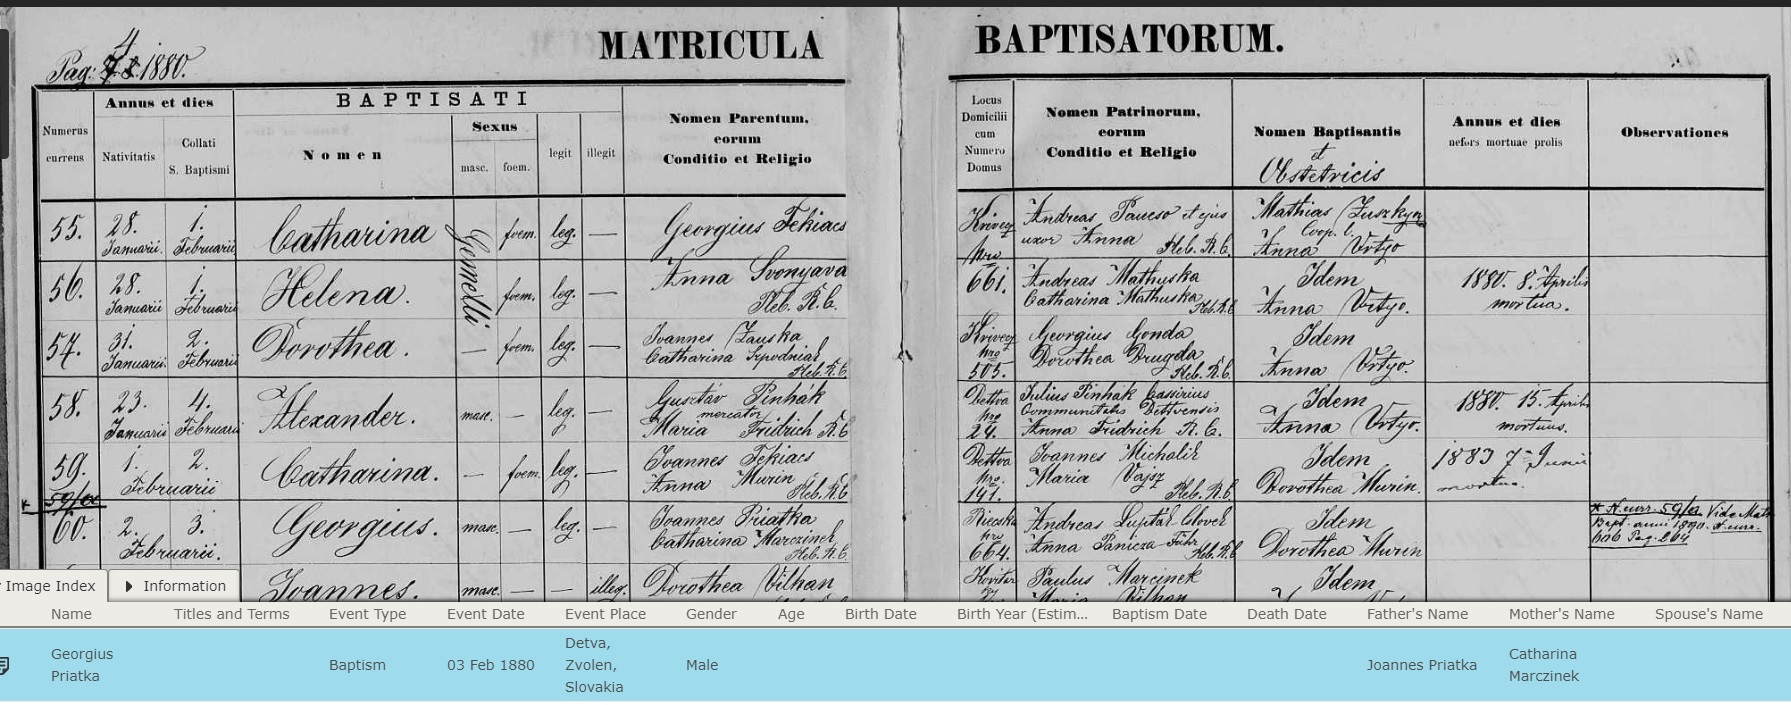 Pag: 4 1880.
MATRICULA BAPTISATORUM.
Numerus currens
Annus et dies
Nativitatis
Collati S. Baptismi
BAPTISATI
Nomen
Sexus
masc.
foem.
legit
illegit
Nomen Parentum, eorum Conditio et Religio
Locus Domicilii cum Numero Domus
Nomen Patrinorum, eorum Conditio et Religio
Nomen Baptisantis
et
Obstetricis
Annus et dies
nefors mortuae prolis
Observationes
55. 28. Januarii 1. Februarii Catharina Gemelli foem. leg. — Georgius Fekiacs
Krivecz Andreas et ejus Mathias
uxor Anna Pleb. R. C. Coop. l.
nro Anna Vrtyo
56. 28. Januarii 1. Februarii Helena. foem. leg. — Anna Svonyava
Pleb. R. C.
661. Andreas Mathuska Idem 1880. 8. Aprilis
Catharina Mathuska Pleb. R. C. Anna Vrtyo. mortua.
57. 31. Januarii 2. Februarii Dorothea. — foem. leg. — Joannes
Catharina Pleb. R. C.
Krivecz Georgius Gonda Idem
nro Dorothea Drugda
505. Pleb. R. C. Anna Vrtyo.
58. 23. Januarii 4. Februarii Alexander. masc. — leg. — Gusztáv Pinhák
mercator
Maria Fridrich R. C
Dettva Julius Pinhák Cassirius Idem 1880. 15. Aprilis
nro Communitatis Dettvensis mortuus.
24. Anna Fridrich R. C. Anna Vrtyo.
59. 1. 2. Februarii Catharina. — foem. leg. — Joannes Fekiacs
Anna Murin Pleb. R. C
Dettva Joannes Michalik Idem 1883 7 Junii
nro Maria Vajsz mortua.
141. Pleb. R. C. Dorothea Murin.
* 59/a
60. 2. 3. Februarii. Georgius. masc. — leg. — Joannes Priatka
Catharina Marczinek
Pleb. R. C.
Riecska Andreas Luptár Clovek Idem
nro Anna Panicza
664. Pleb. R. C Dorothea Murin
* N. curr. 59/a Vide Matr.
Bapt. anni 1890. N. curr.
606 Pag. 264
Joannes. masc. — — illeg. Dorothea Vilhan
Paulus Marcinek Idem
Maria Vilhan
Image Index
Information
Name Titles and Terms Event Type Event Date Event Place Gender Age Birth Date Birth Year (Estim... Baptism Date Death Date Father's Name Mother's Name Spouse's Name
Georgius Priatka
Baptism
03 Feb 1880
Detva,
Zvolen,
Slovakia
Male
Joannes Priatka
Catharina
Marczinek